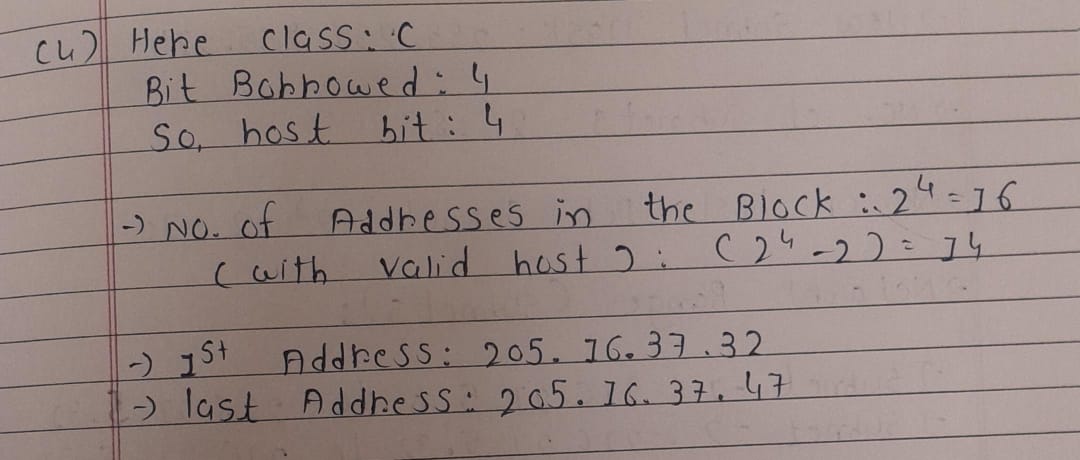 (4) Here class: C
Bit Borrowed: 4
So, host bit: 4
-> No. of Addresses in the Block: 2^4 = 16
(with valid host): (2^4 - 2) = 14
-> 1st Address: 205.16.37.32
-> last Address: 205.16.37.47